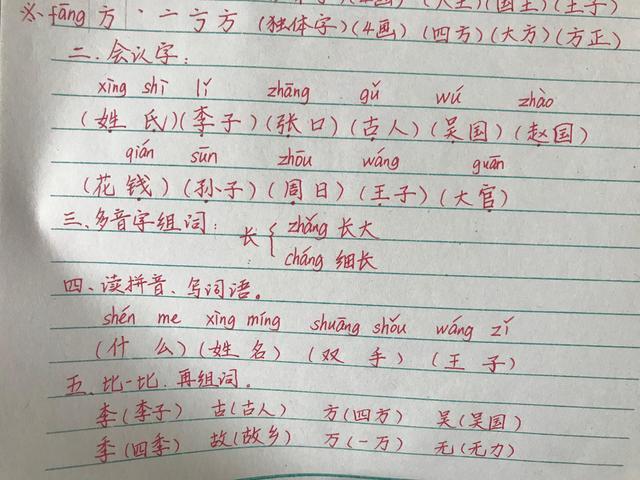 (4画)(大王)(国王)(王子)
※、fāng 方丶一亍方(独体字)(4画)(四方)(大方)(方正)
二、会认字:
xìng shì lǐ zhāng gǔ wú zhào
(姓氏)(李子)(张口)(古人)(吴国)(赵国)
qián sūn zhōu wáng guān
(花钱)(孙子)(周日)(王子)(大官)
三、多音字组词:长{zhǎng 长大
cháng 细长
四、读拼音、写词语。
shén me xìng míng shuāng shǒu wáng zǐ
(什么)(姓名)(双手)(王子)
五、比一比,再组词。
李(李子) 古(古人) 方(四方) 吴(吴国)
季(四季) 故(故乡) 万(一万) 无(无力)